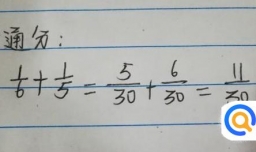 通分：
1/6 + 1/5 = 5/30 + 6/30 = 11/30